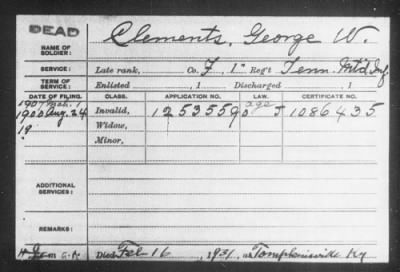 DEAD
NAME OF SOLDIER: Clements, George W.
SERVICE: Late rank, Co. F, 1" Reg't Tenn. Mt'd Inf.
TERM OF SERVICE: Enlisted , 1 Discharged , 1
DATE OF FILING. CLASS. APPLICATION NO. LAW. CERTIFICATE NO.
1907 Mch. 1 age
1900 Aug. 24 Invalid, 1253559 J 1086435
19 Widow,
Minor,
ADDITIONAL SERVICES:
REMARKS:
Died Feb 16, 1931, at Tompkinsville Ky